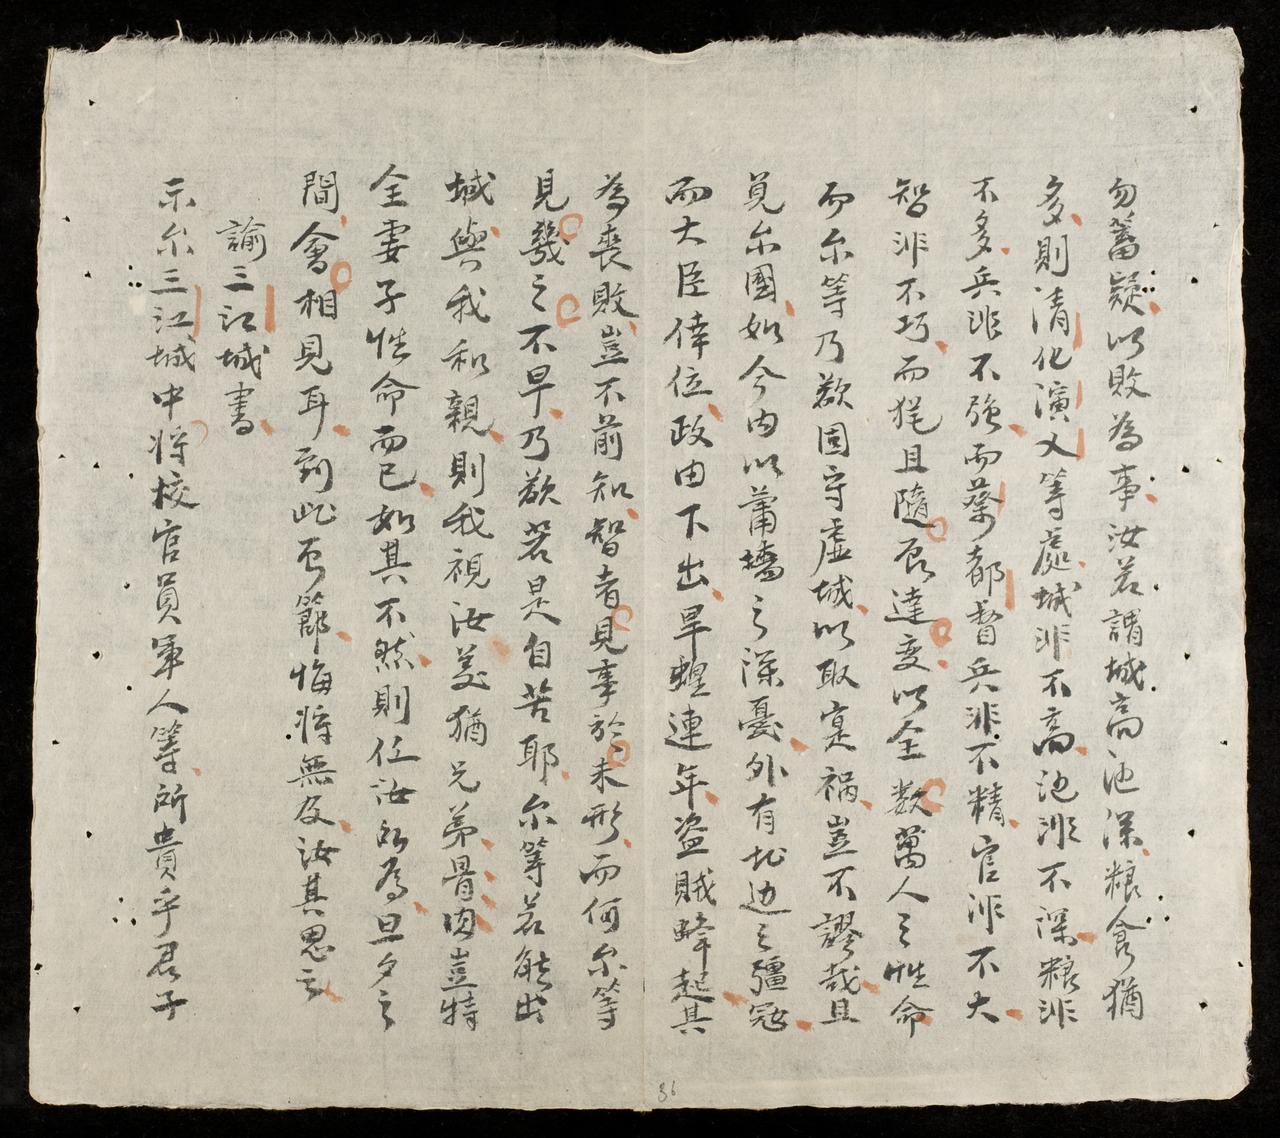 勿蓄疑以敗為事汝若謂城高池深粮食猶
多則清化演乂等處城非不高池非不深粮非
不多兵非不強而蔡都督兵非不精官非不大
智非不巧而猶且隨 達变以全数萬人之性命
而尔等乃欲固守虚城以取寔禍豈不謬哉且
見尔國如今内以蕭墻之深憂外有北边之疆寇
而大臣倖位政由下出旱蝗連年盗賊蜂起其
為喪敗豈不前知智者見事於未形而何尔等
見幾之不早乃欲若是自苦耶尔等若能出
城與我和親則我視汝輩猶兄弟骨肉豈特
全妻子性命而已如其不然則任汝所為旦夕之
間會相見耳到此 節悔将無及汝其思之
諭三江城書
示尔三江城中将校官員軍人等所貴乎君子
36